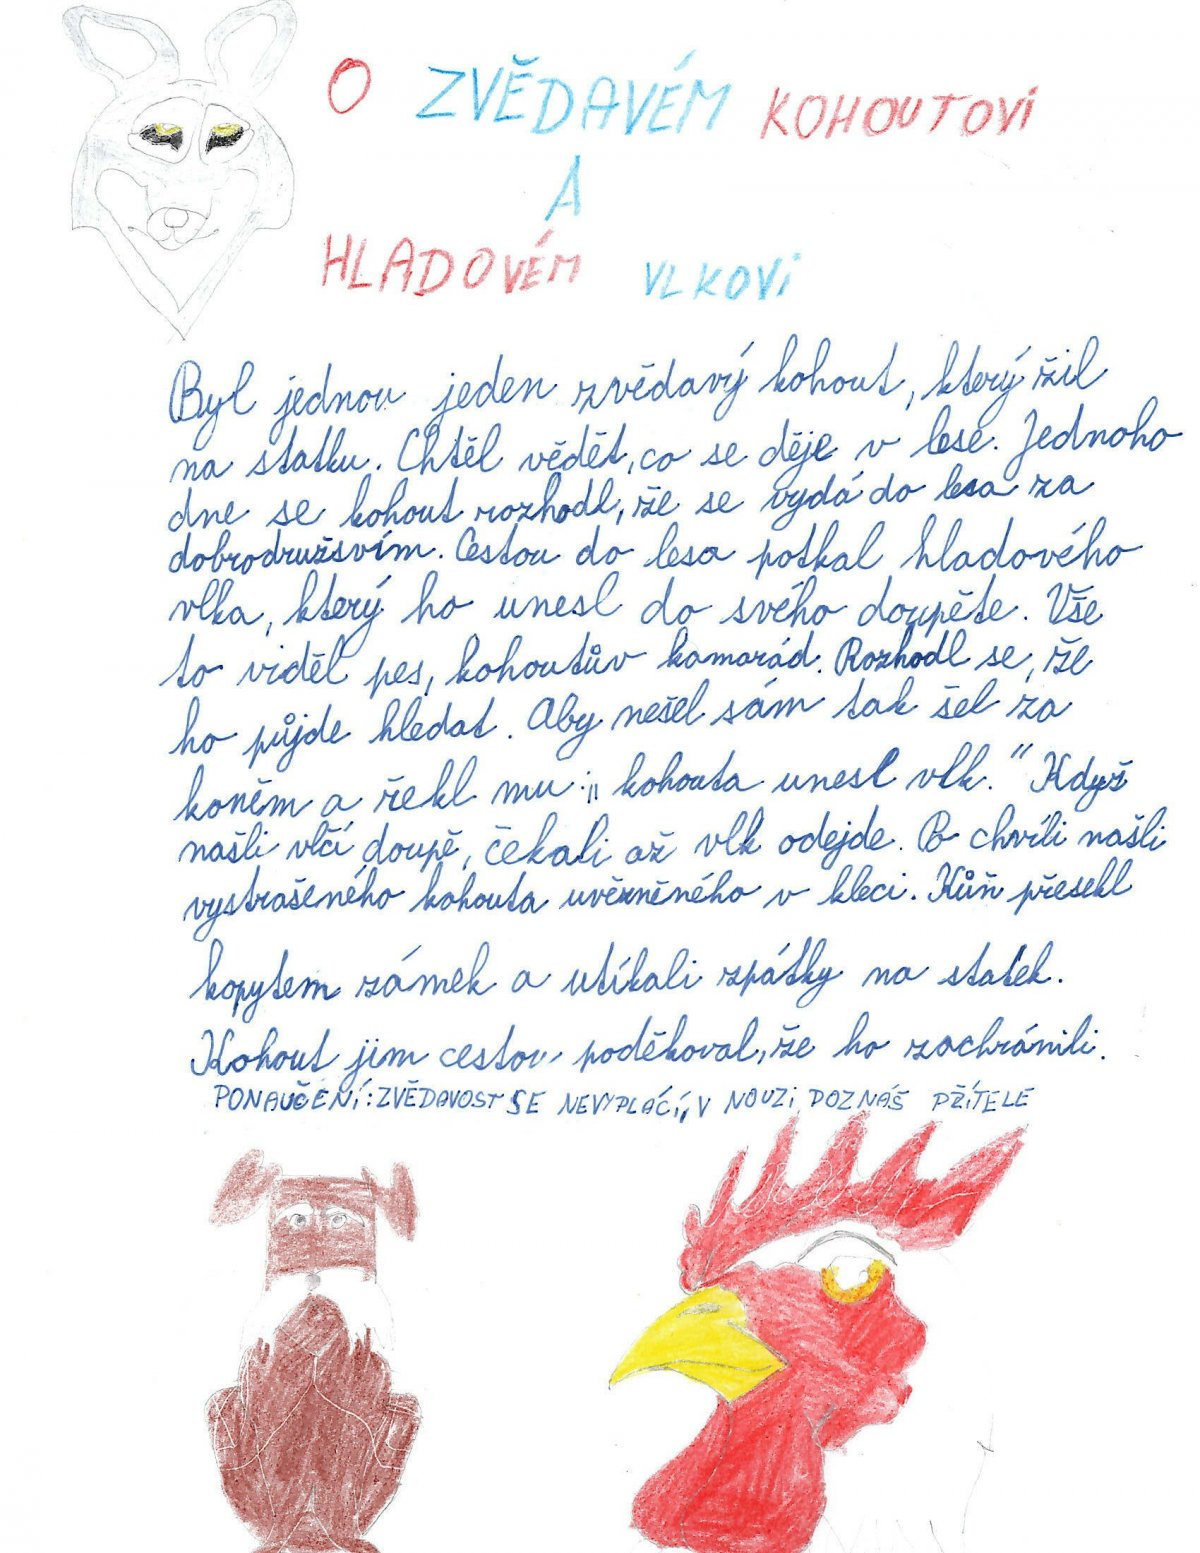 O ZVĚDAVÉM KOHOUTOVI
A
HLADOVÉM VLKOVI
Byl jednou jeden zvědavý kohout, který žil
na statku. Chtěl vědět, co se děje v lese. Jednoho
dne se kohout rozhodl, že se vydá do lesa za
dobrodružsvím. Cestou do lesa potkal hladového
vlka, který ho unesl do svého doupěte. Vše
to viděl pes, kohoutův kamarád. Rozhodl se, že
ho půjde hledat. Aby nešel sám tak šel za
koněm a řekl mu: „kohouta unesl vlk.“ Když
našli vlčí doupě, čekali až vlk odejde. Po chvíli našli
vystrašeného kohouta uvězněného v kleci. Kůň přesekl
kopytem zámek a utíkali zpátky na statek.
Kohout jim cestou poděkoval, že ho zachránili.
PONAUČENÍ: ZVĚDAVOST SE NEVYPLÁCÍ, V NOUZI POZNÁŠ PŽÍTELE